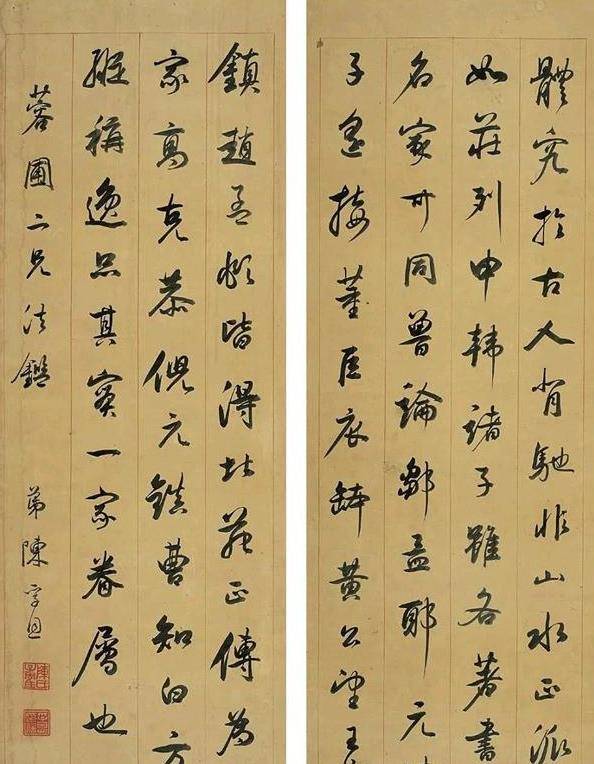 體究於古人背馳非山水正派
如莊列申韓諸子雖各著書
名家可同魯論鄒孟耶元
子遙接董巨衣缽黃公望王
鎮趙孟頫皆得北苑正傳為
家高克恭倪元鎮曹知白方
縱稱逸品其實一家眷屬也
蓉圃二兄法鑑 弟陳孚恩